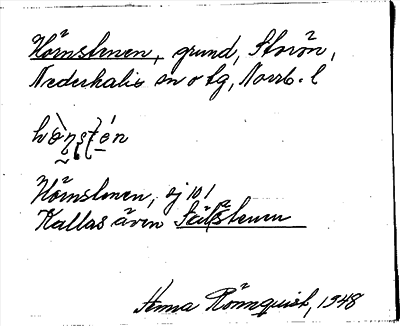 Hörnstenen, grund, Storön,
Nederkalix sn o tg, Norrb. l
Hörnstenen, ej 10!
Kallas även Själstenen
Anna Rönnquist, 1948